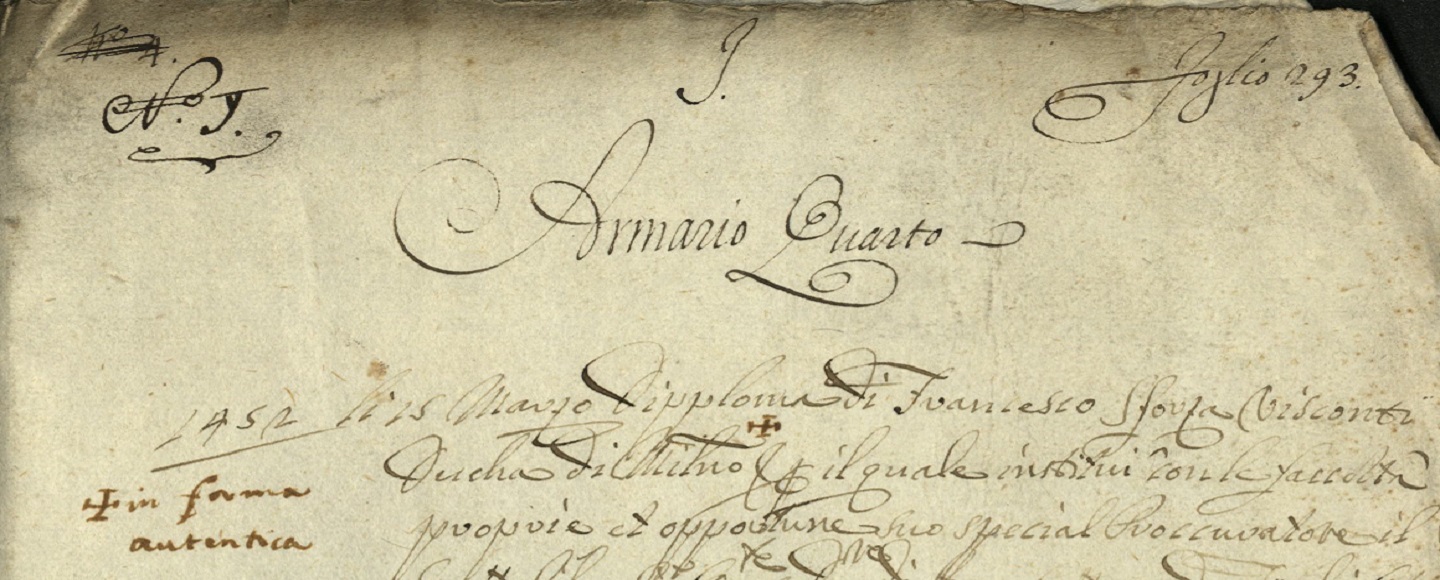 Nº 4.
Nº. 9.
J.
Foglio 293.
Armario Quarto
1452 li 15 Marzo Dipploma di Francesco Sforza Visconti
Ducha di Milno ✠ il quale institui con le faccoltà
✠ in forma
autentica
proprie et opportune suo special Proccuratore il